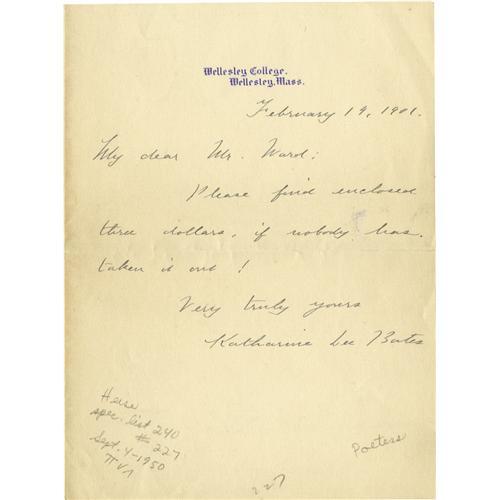 Wellesley College.
Wellesley, Mass.
February 19, 1901.
My dear Mr. Ward:
Please find enclosed
three dollars, if nobody has
taken it out!
Very truly yours
Katharine Lee Bates
Heise
spec. list 240
# 227
Sept. 4-1950
Poeters
227